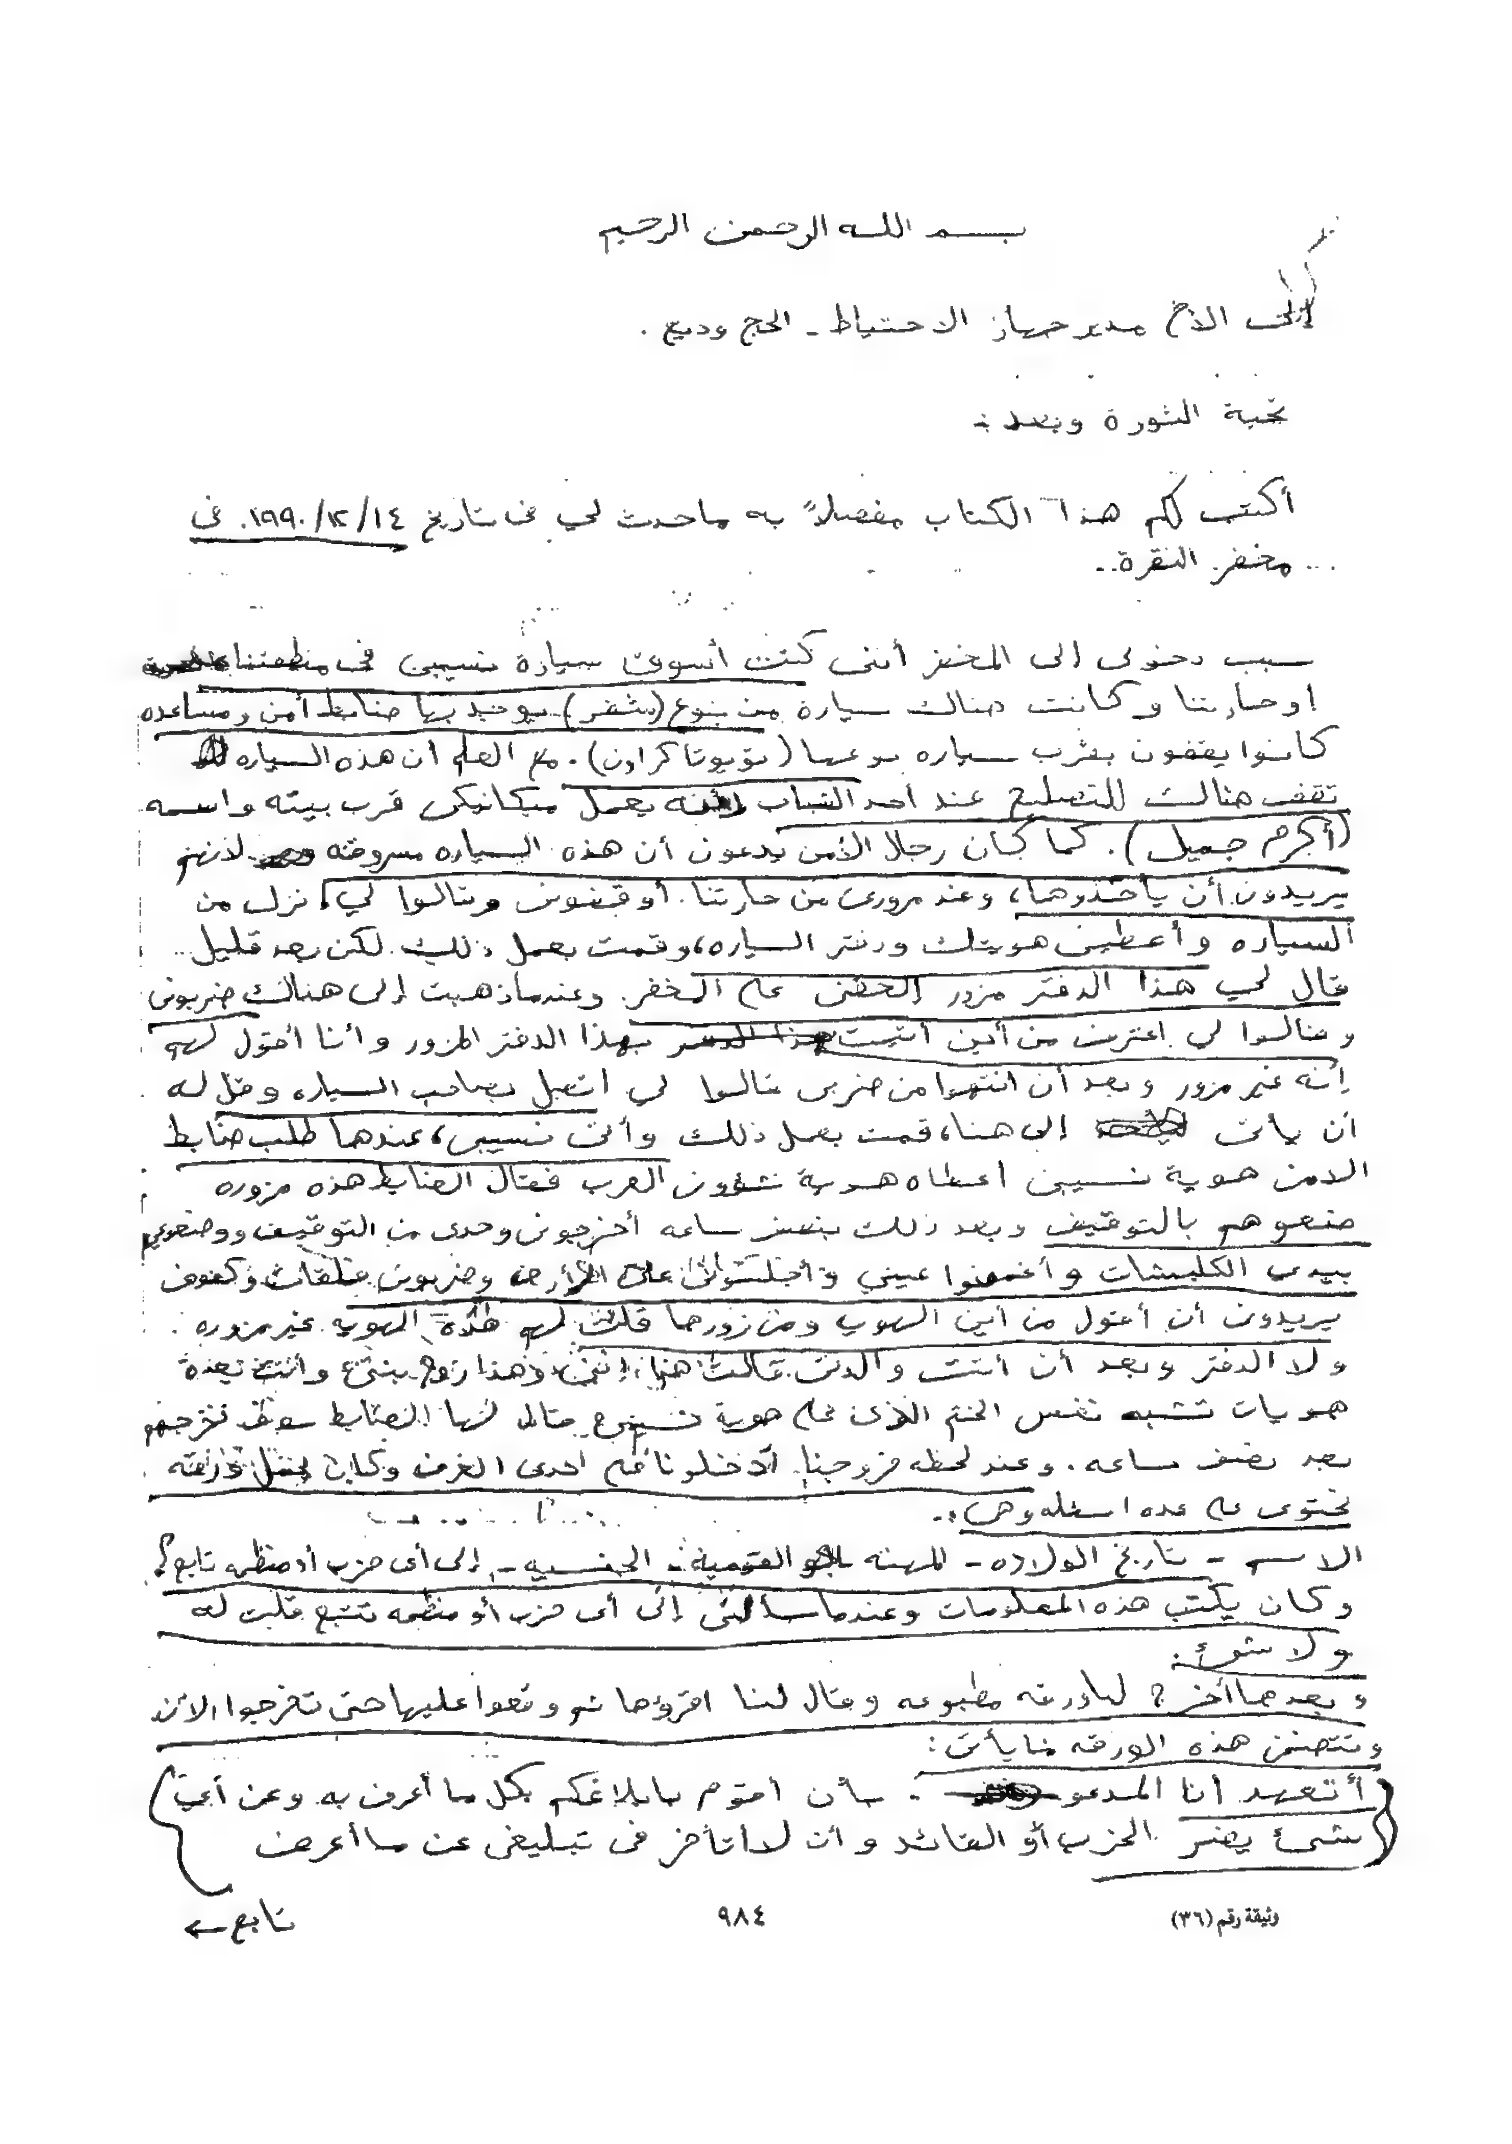 بسم الله الرحمن الرحيم
إلى الأخ مدير جهاز الاحتياط - الحج وديع .
تحية الثورة وبعد :
أكتب لكم هذا الكتاب مفصلاً به ما حدث لي في تاريخ ١٩٩٠/١٢/١٤. في
مخفر النقرة ..
سبب دخولي إلى المخفر أنني كنت أسوق سيارة نسيبي في منطقتنا
او حارتنا وكانت هنالك سيارة من نوع (شفر) يوجد بها ضابط أمن ومساعده
كانوا يقفون بقرب سياره نوعها (تويوتا كراون). مع العلم أن هذه السياره
تقف هنالك للتصليح عند أحد الشباب لأنه يعمل ميكانيكي قرب بيته واسمه
(أكرم جميل). كما كان رجلا الأمن يدعون أن هذه السياره مسروقه لانهم
يريدون أن يأخذوها، وعند مروري من حارتنا. أوقفوني وقالوا لي، نزل من
السياره وأعطيني هويتك ودفتر السياره، وقمت بعمل ذلك. لكن بعد قليل
قال لي هذا الدفتر مزور إلحقني على المخفر. وعندما ذهبت إلى هنالك ضربوني
وقالوا لي اعترف من أين أتيت بهذا الدفتر المزور وأنا أقول لهم
إنه غير مزور وبعد أن انتهوا من ضربي قالوا لي اتصل بصاحب السياره وقل له
أن يأتي إلى هنا، قمت بعمل ذلك وأتى نسيبي، عندها طلب ضابط
الامن هوية نسيبي أعطاه هوية شؤون العرب فقال الضابط هذه مزوره
ضعوهم بالتوقيف وبعد ذلك بنصف ساعه أخرجوني وحدي من التوقيف ووضعوا في
بيدي الكلبشات وأغمضوا عيني وأجلسوني على الأرض وضربوني فلقات وكفوف
يريدون أن أقول من أين الهويه ومن زورها قلت لهم هذه الهويه غير مزوره .
ولا الدفتر وبعد أن أتت والدتي قالت هذا إبني، وهذا زوج بنتي وأتت بعدة
هويات تشبه نفس الختم الذي على هوية نسيبي قال لها الضابط سوف نخرجهم
بعد نصف ساعه. وعند لحظه خروجنا أدخلونا على احدى الغرف وكان يحمل ورقه
تحتوي على عده اسئله وهي :ـ
الاسم - تاريخ الولاده - المهنه القومية - الجنسيه - إلى أي حزب أو منظمه تابع ؟
وكان يكتب هذه المعلومات وعندما سألني إلى أي حزب أو منظمه تتبع قلت له
ولا شئ .
وبعدها أخرج لنا ورقه مطبوعه وقال لنا اقرؤها ثم وقعوا عليها حتى تخرجوا الآن
وتتضمن هذه الورقه ما يأتي :
(أتعهد أنا المدعو . بأن أقوم بابلاغكم بكل ما أعرف به وعن أي
شئ يضر الحزب أو القائد وأن لا أتأخر في تبليغي عن ما أعرف
وثيقة رقم (٣٦)
٩٨٤
تابع ←